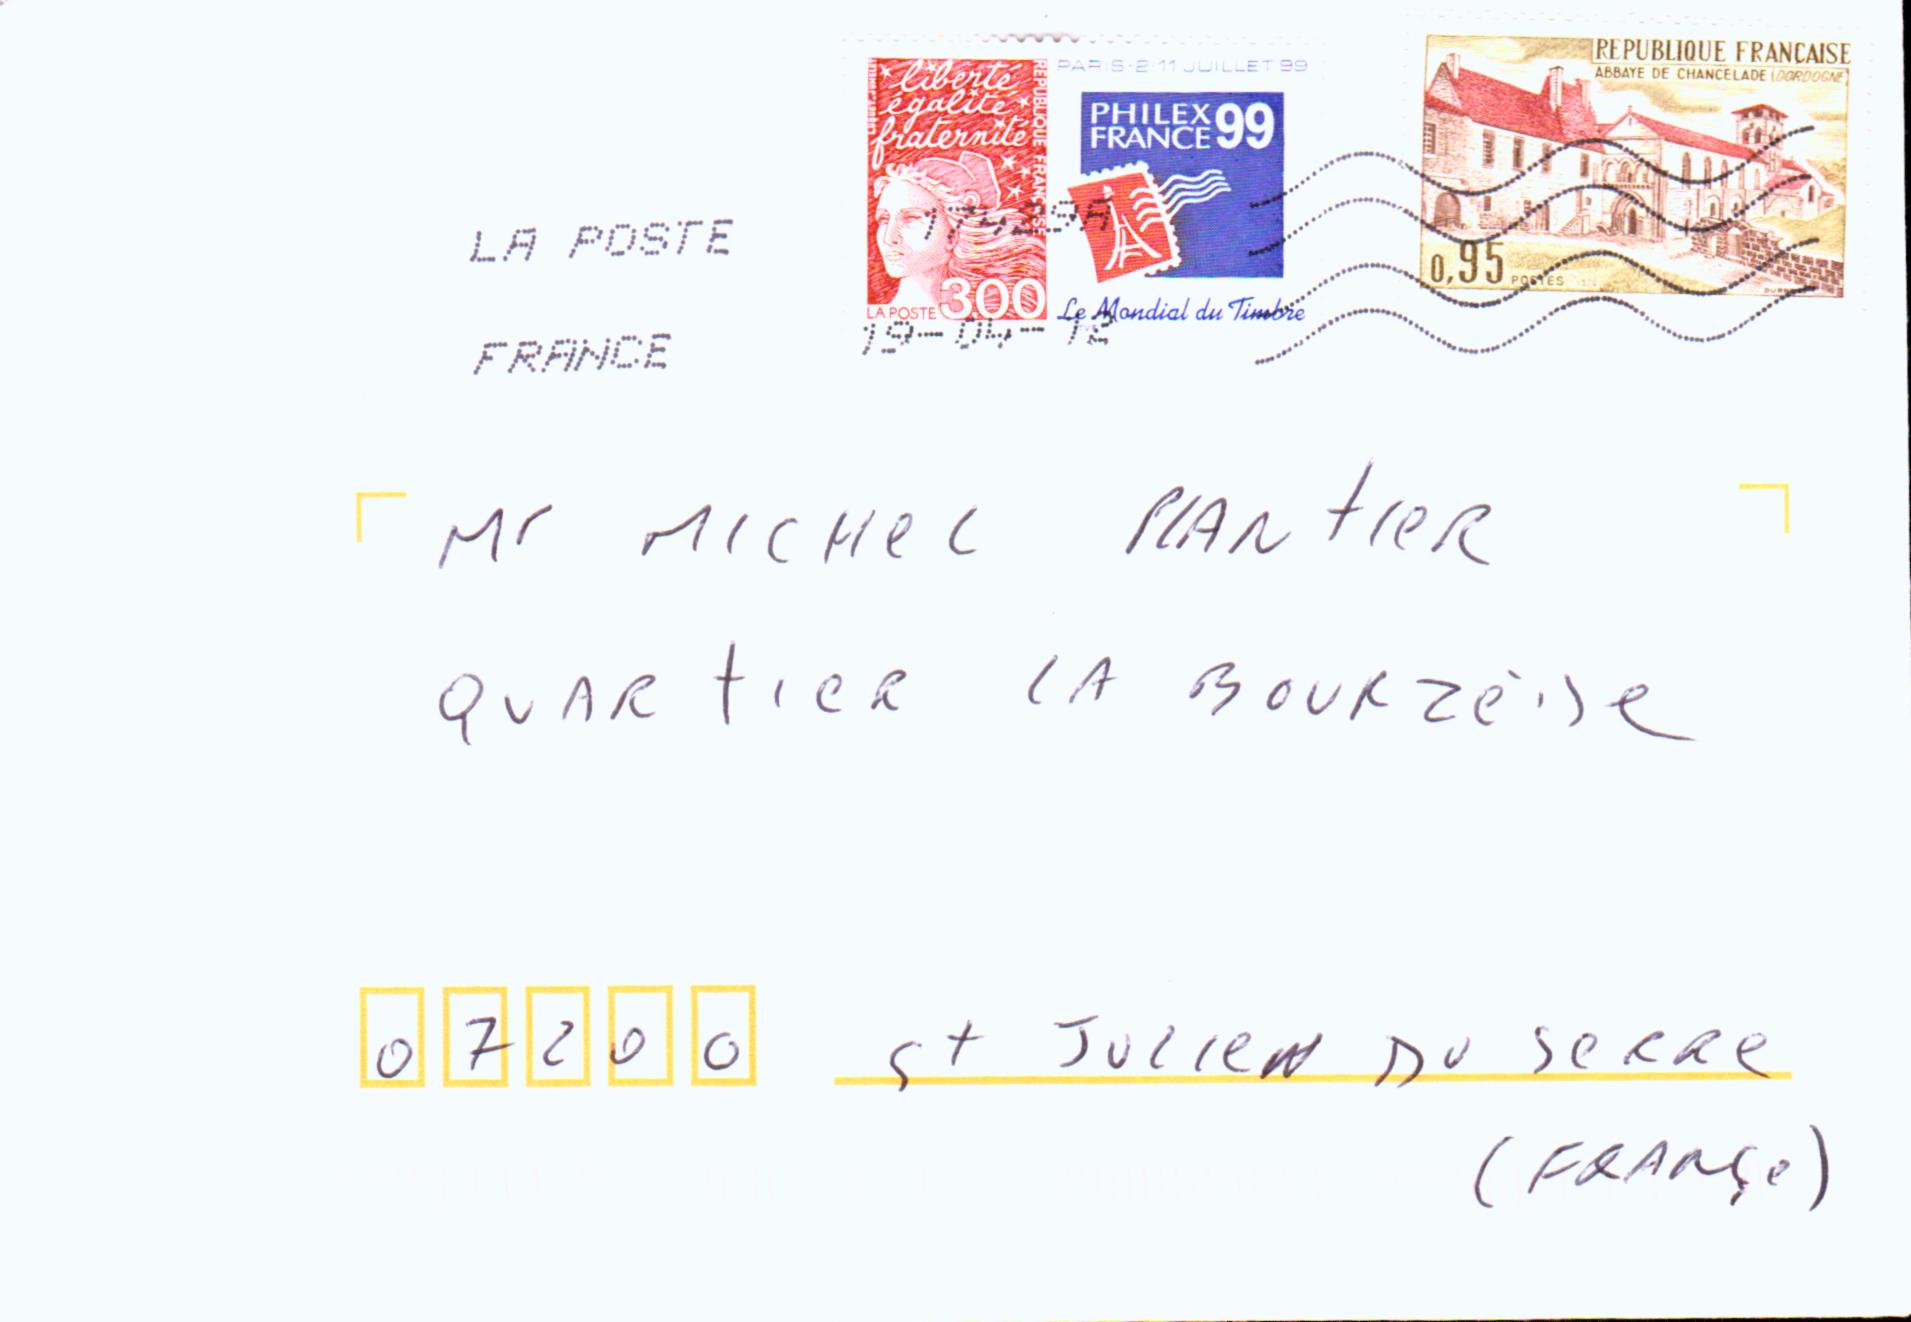 liberté
égalité
fraternité
REPUBLIQUE FRANÇAISE
LA POSTE 3,00
PARIS·2·11 JUILLET 99
PHILEX
FRANCE 99
Le Mondial du Timbre
REPUBLIQUE FRANÇAISE
ABBAYE DE CHANCELADE (DORDOGNE)
0,95 POSTES
LA POSTE
17429A
FRANCE
19-04-12
Mr MICHEL PLANTIER
QUARTIER LA BOURZÈISE
07200 St JULIEN DU SERRE
(FRANÇE)